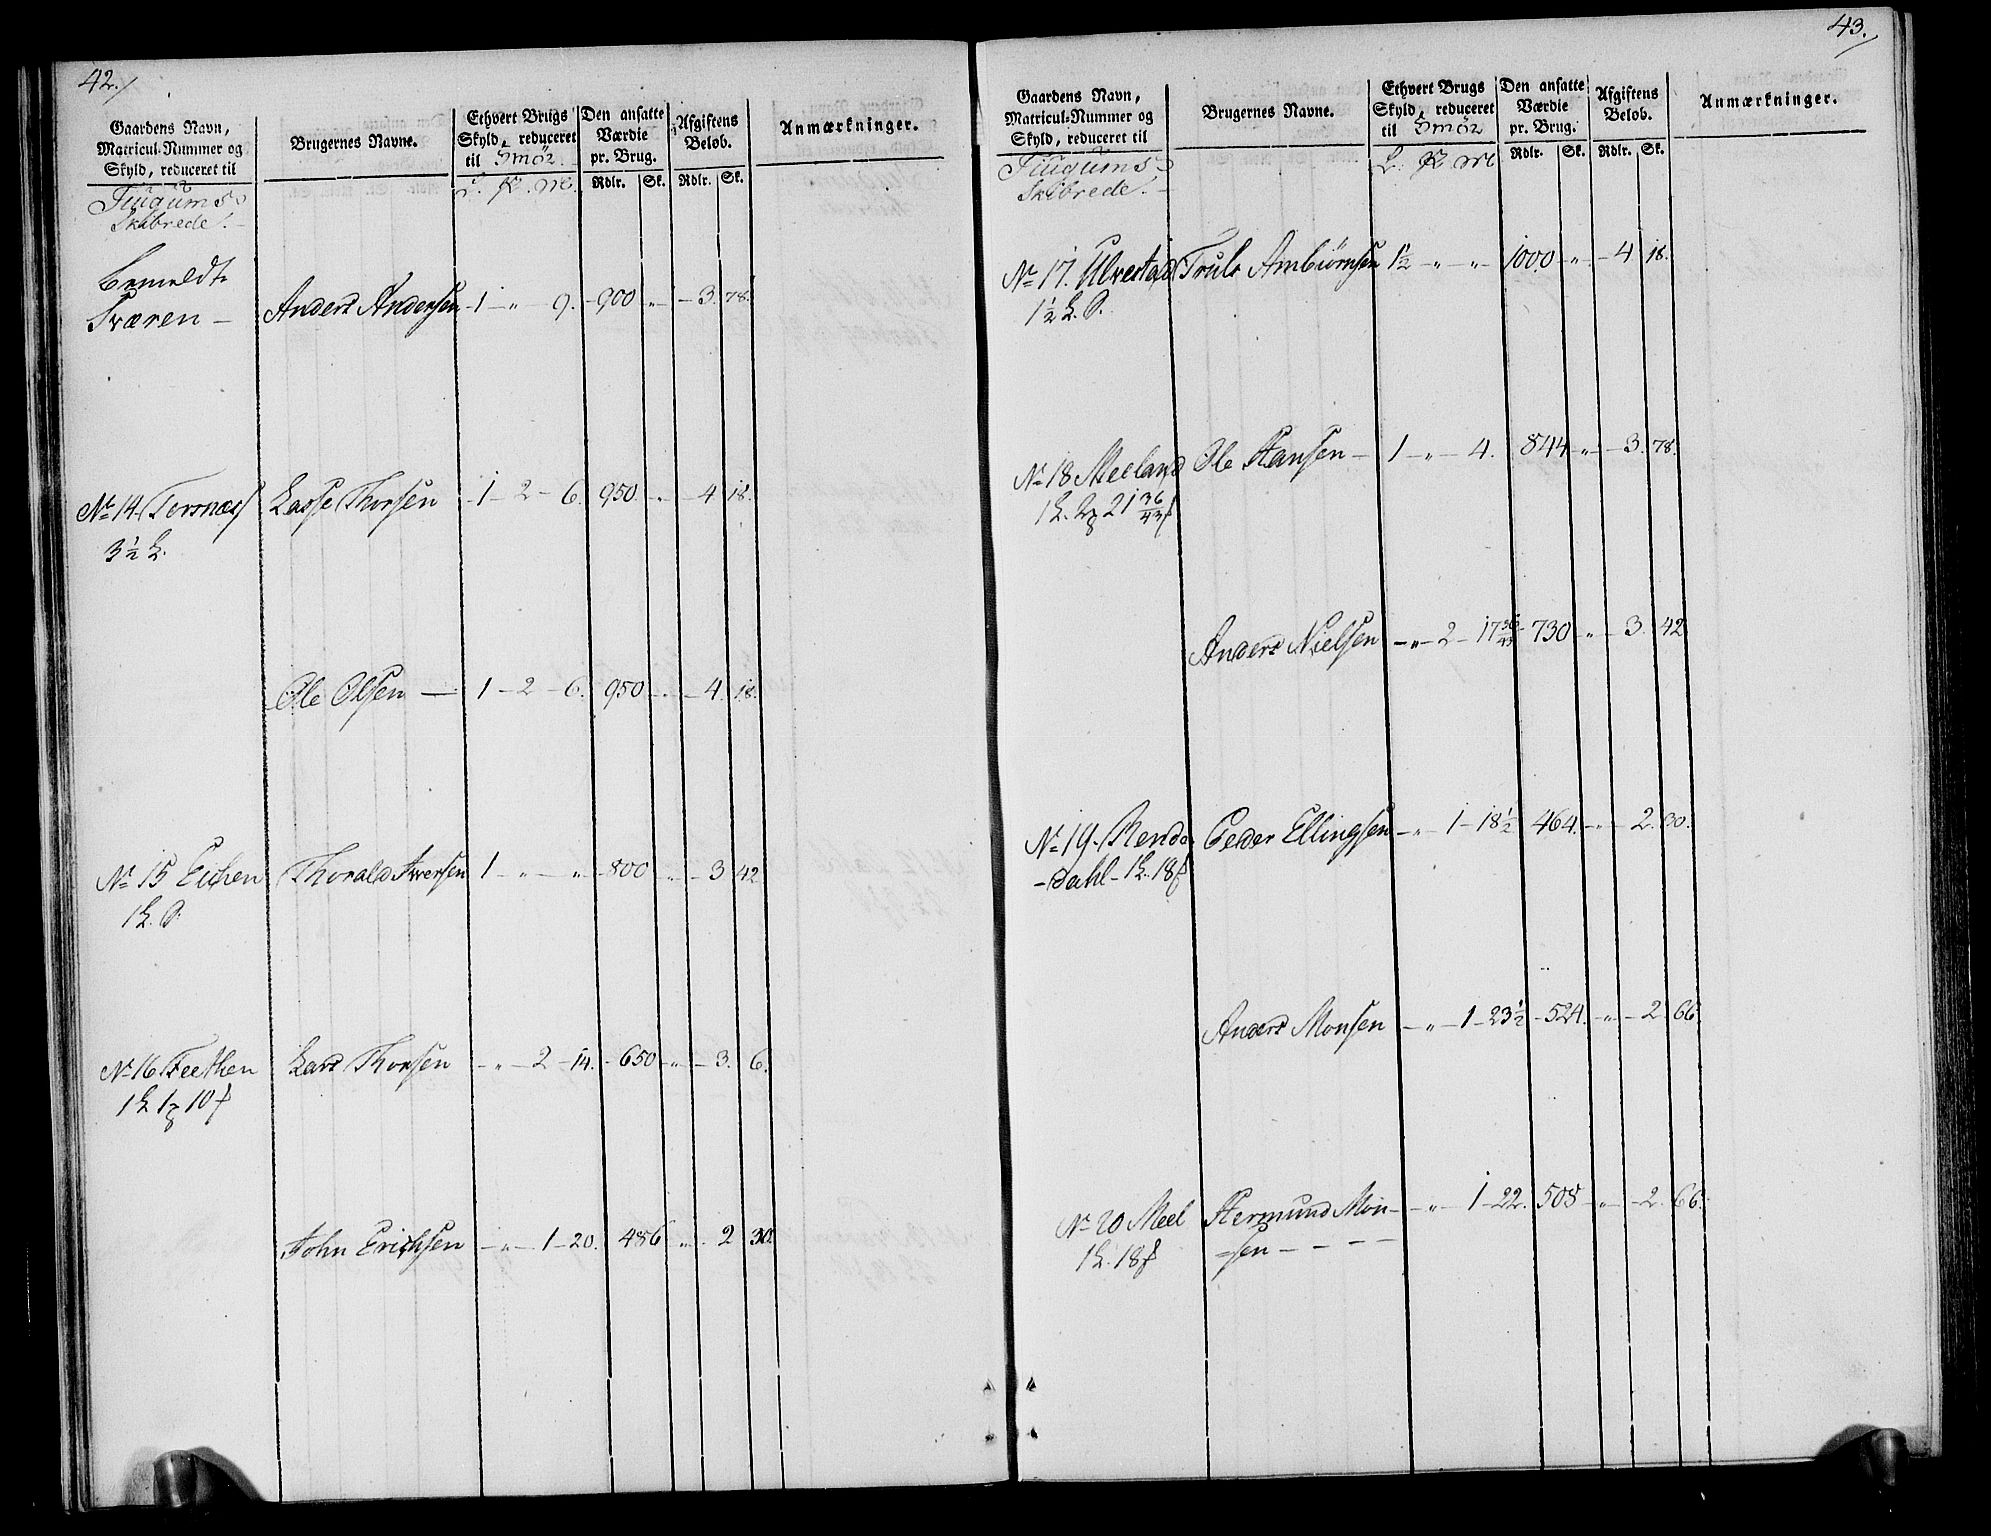 42./
Gaardens Navn, Matricul-Nummer og Skyld, reduceret til
Brugernes Navne.
Ethvert Brugs Skyld, reduceret til Smör.
Den ansatte Værdie pr. Brug.
Afgiftens Beløb.
Anmærkninger.
Rdlr. Sk. Rdlr. Sk.
Skibrede.
Bemeldte
Sværen – Anders Andersen 1 – „ – 9. 900 „ 3. 78.
No 14. Ternæs Lasse Thorsen 1 – 2 – 6. 950 „ 4 18.
3½ L.
Ole Olsen — 1 – 2 – 6. 950 „ 4. 18.
No 15 Eithen Thorald Iversen 1 – „ – „ 800 „ 3 42
1 L. S.
No 16 Feethen Lars Thorsen – „ – 2 – 14. 650 „ 3. 6.
1 L 1 10
John Erichsen – „ – 1 – 20. 486 „ 2 30.
43./
Gaardens Navn, Matricul-Nummer og Skyld, reduceret til
Brugernes Navne.
Ethvert Brugs Skyld, reduceret til Smör
Den ansatte Værdie pr. Brug.
Afgiftens Beløb.
Anmærkninger.
Rdlr. Sk. Rdlr. Sk.
Skibrede.
No 17. Ulvestad Truls Ambiørnsen 1½ „ „ 1000 „ 4 18.
1½ L. S.
No 18 Meeland Ole Hansen – 1 – „ – 4. 844 „ 3. 78.
1 L. 2 21 36/43
Anders Nielsen – „ – 2 – 17 36/43 730 „ 3. 42
No 19. Renda Peder Ellingsen – „ 1 – 18½ 464. „ 2. 30.
– dahl – 1 L. 18
Anders Monsen – „ – 1 – 23½ 524. „ 2. 66.
No 20 Meel Hermund Mon– – „ – 1 – 22. 508 „ 2. 66.
1 L. 18 –sen – – – –